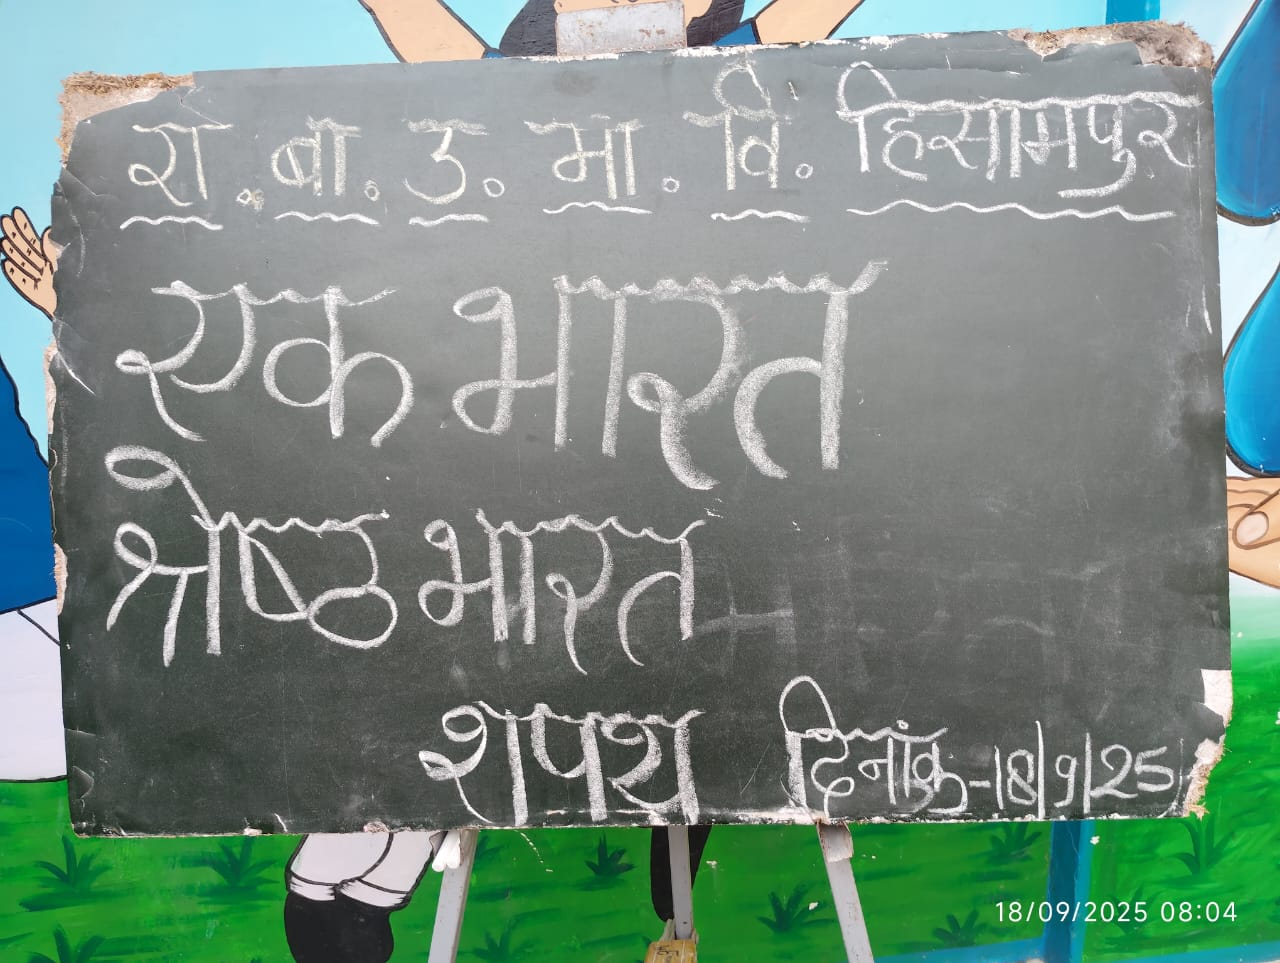 रा. बा. उ. मा. वि. हिसामपुर
एक भारत
श्रेष्ठ भारत
शपथ दिनांक-18/9/25
18/09/2025 08:04